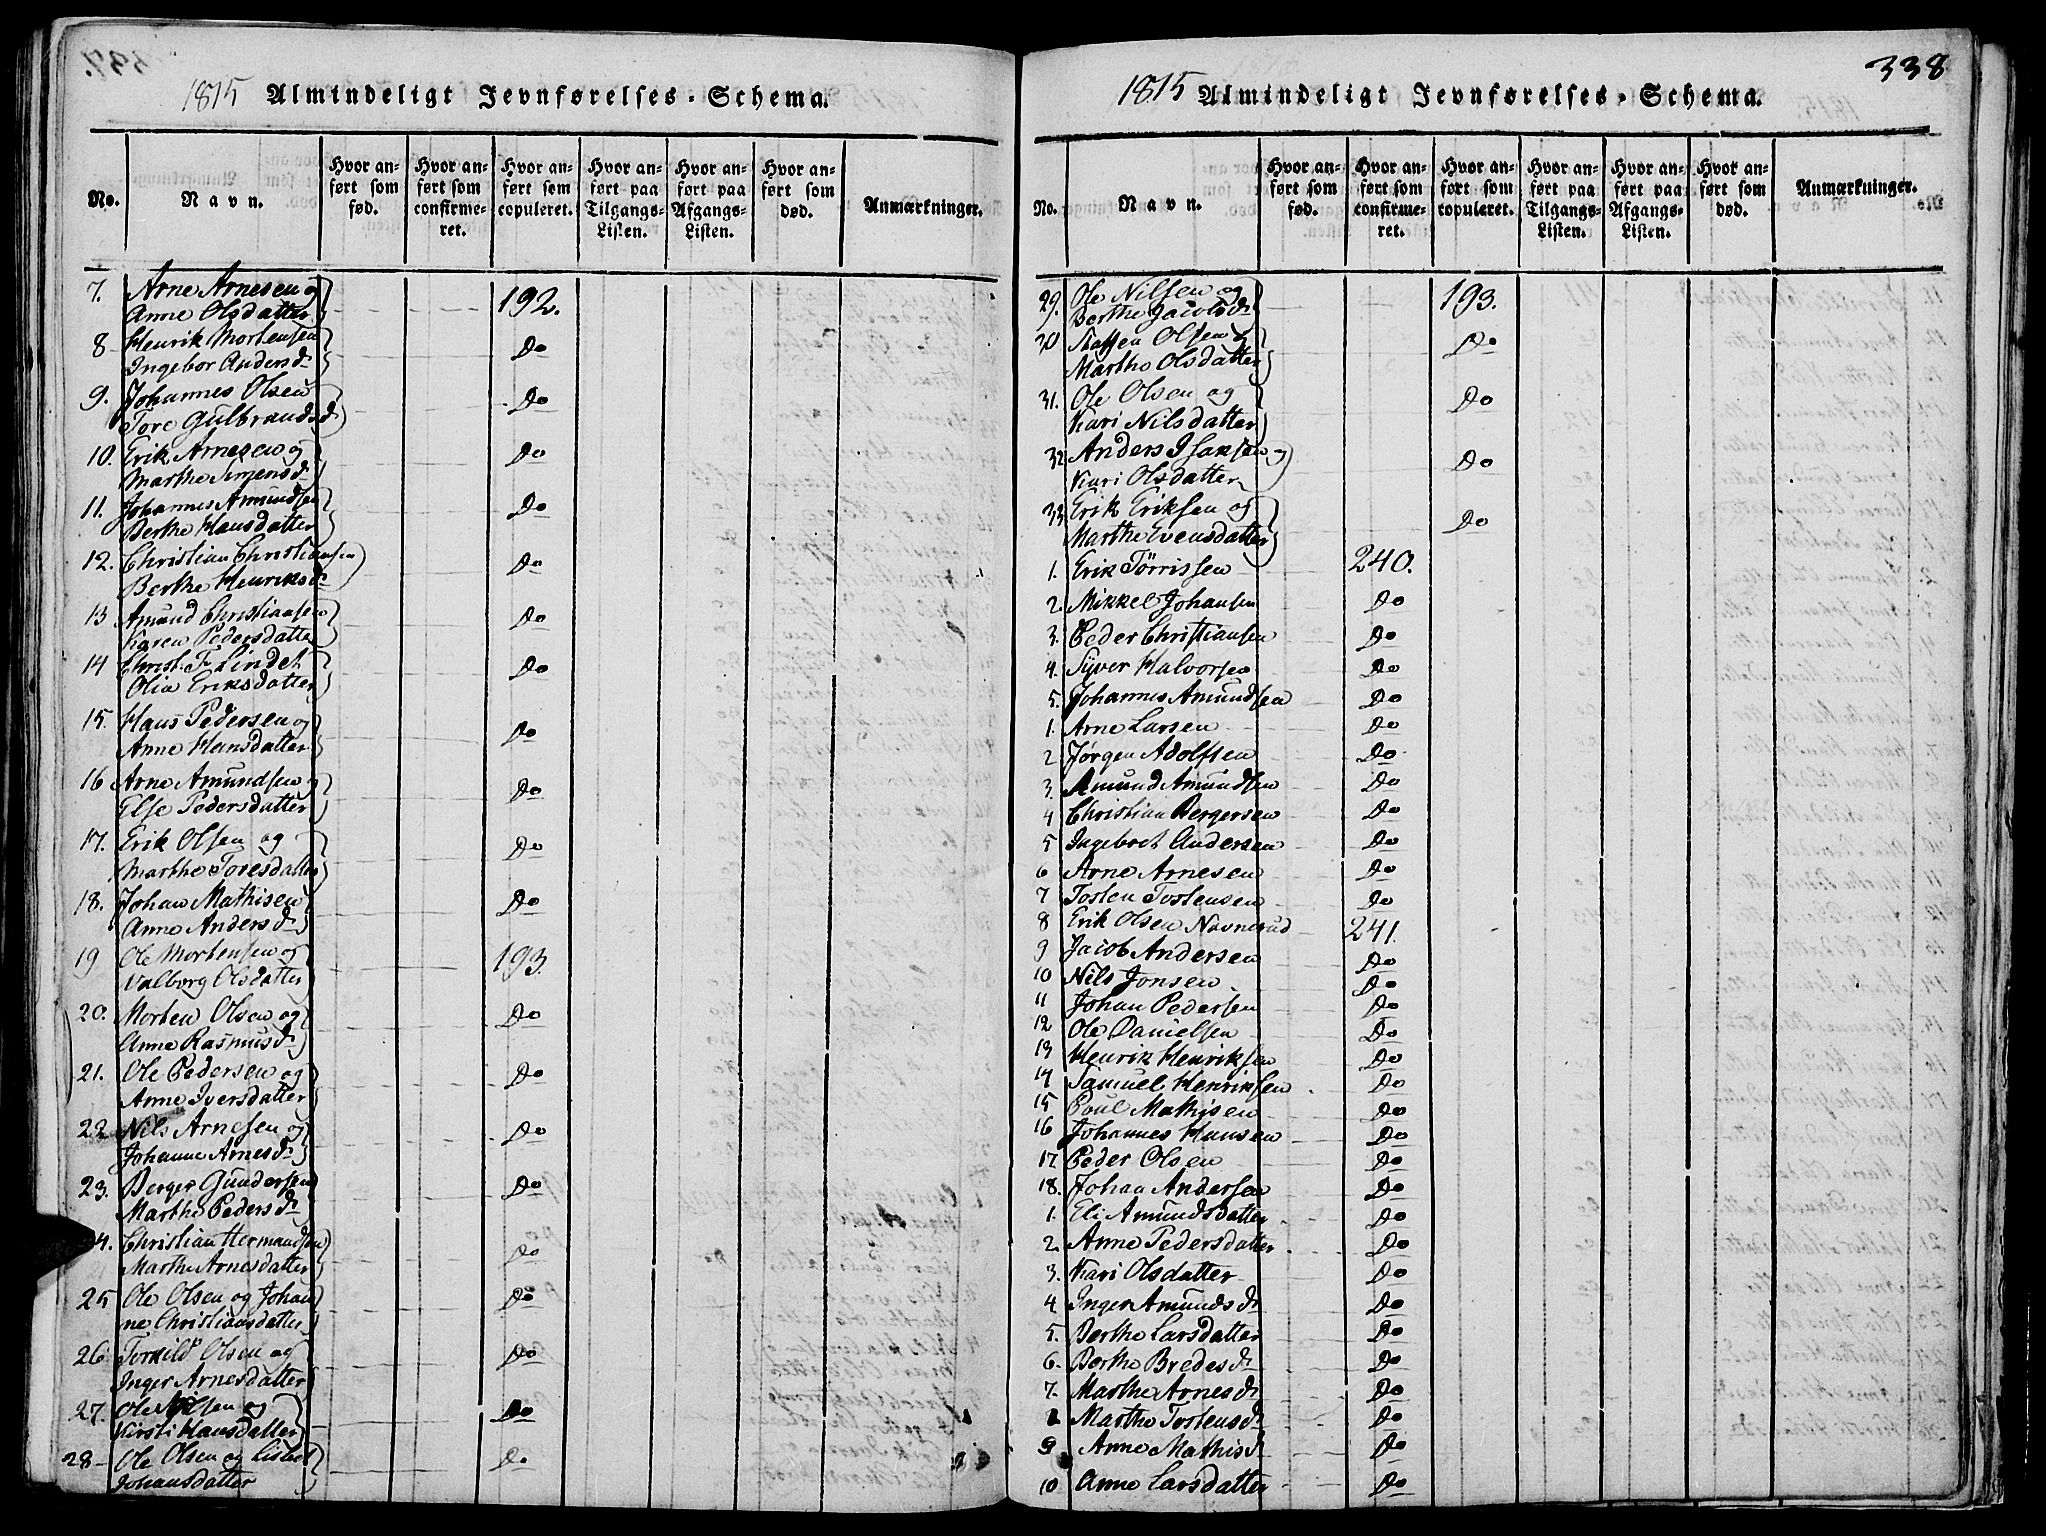 1815 Almindeligt Jevnførelses-Schema.
No.
Navn.
Hvor an-
ført som
fød.
Hvor an-
ført som
confirme-
ret.
Hvor an-
ført som
copuleret.
Hvor an-
ført paa
Tilgangs-
Listen.
Hvor an-
ført paa
Afgangs-
Listen.
Hvor an-
ført som
død.
Anmærkninger.
7. Arne Arnesen og
Anne Olsdatter 192.
8 Henrik Mortensen
Ingebor Andersd. Do
9. Johannes Olsen
Tore Gulbrandsd. Do
10. Erik Arnesen og
Marthe Simensd. Do
11. Johannes Amundsen
Berthe Hansdatter Do
12. Christian Christiansen
Berthe Henriksd. Do
13 Amund Christiansen
Karen Pedersdatter Do
14 Christ. F. Lindet
Olia Eriksdatter Do
15. Hans Pedersen og
Anne Hansdatter Do
16 Arne Amundsen og
Else Pedersdatter Do
17. Erik Olsen og
Marthe Toresdatter Do
18. Johan Mathisen
Anne Andersd. Do
19 Ole Mortensen og
Valborg Olsdatter 193.
20. Morten Olsen og
Anne Rasmusd. Do
21. Ole Pedersen og
Anne Iversdatter Do
22 Nils Arnesen og
Johanne Arnesd. Do
23. Berger Gundersen
Marthe Pedersd. Do
24. Christian Hermandsen
Marthe Arnesdatter Do
25 Ole Olsen og Johan
ne Christiansdatter Do
26 Torkild Olsen og
Inger Arnesdatter Do
27. Ole Nilsen og
Kirsti Hansdatter Do
28 Ole Olsen og Lisbet
Johansdatter Do
338
1815 Almindeligt Jevnførelses-Schema.
No.
Navn.
Hvor an-
ført som
fød.
Hvor an-
ført som
confirme-
ret.
Hvor an-
ført som
copuleret.
Hvor an-
ført paa
Tilgangs-
Listen.
Hvor an-
ført paa
Afgangs-
Listen.
Hvor an-
ført som
død.
Anmærkninger.
29. Ole Nilsen og
Berthe Jacobsd. 193.
30 Staffen Olsen og
Marthe Olsdatter Do
31. Ole Olsen og
Kari Nilsdatter Do
32 Anders Isaksen og
Kari Olsdatter Do
33 Erik Eriksen og
Marthe Evensdatter Do
1. Erik Tørrissen 240.
2. Mikkel Johansen Do
3. Peder Christiansen Do
4. Syver Halvorsen Do
5. Johannes Amundsen Do
1. Arne Larsen Do
2 Jørgen Adolfsen Do
3. Amund Amundsen Do
4 Christian Bergersen Do
5 Ingebret Andersen Do
6 Arne Arnesen Do
7 Tosten Tostensen Do
8 Erik Olsen Navnerud 241.
9 Jacob Andersen Do
10 Nils Jonsen Do
11 Johan Pedersen Do
12 Ole Danielsen Do
13 Henrik Henriksen Do
14 Samuel Henriksen Do
15 Poul Mathisen Do
16 Johannes Hansen Do
17 Peder Olsen Do
18. Johan Andersen Do
1. Eli Amundsdatter Do
2. Anne Pedersdatter Do
3. Kari Olsdatter Do
4 Inger Amundsd. Do
5. Berthe Larsdatter Do
6. Berthe Bredesd. Do
7. Marthe Arnesd. Do
8 Marthe Tostensd. Do
9 Anne Mathisd. Do
10 Anne Larsdatter Do